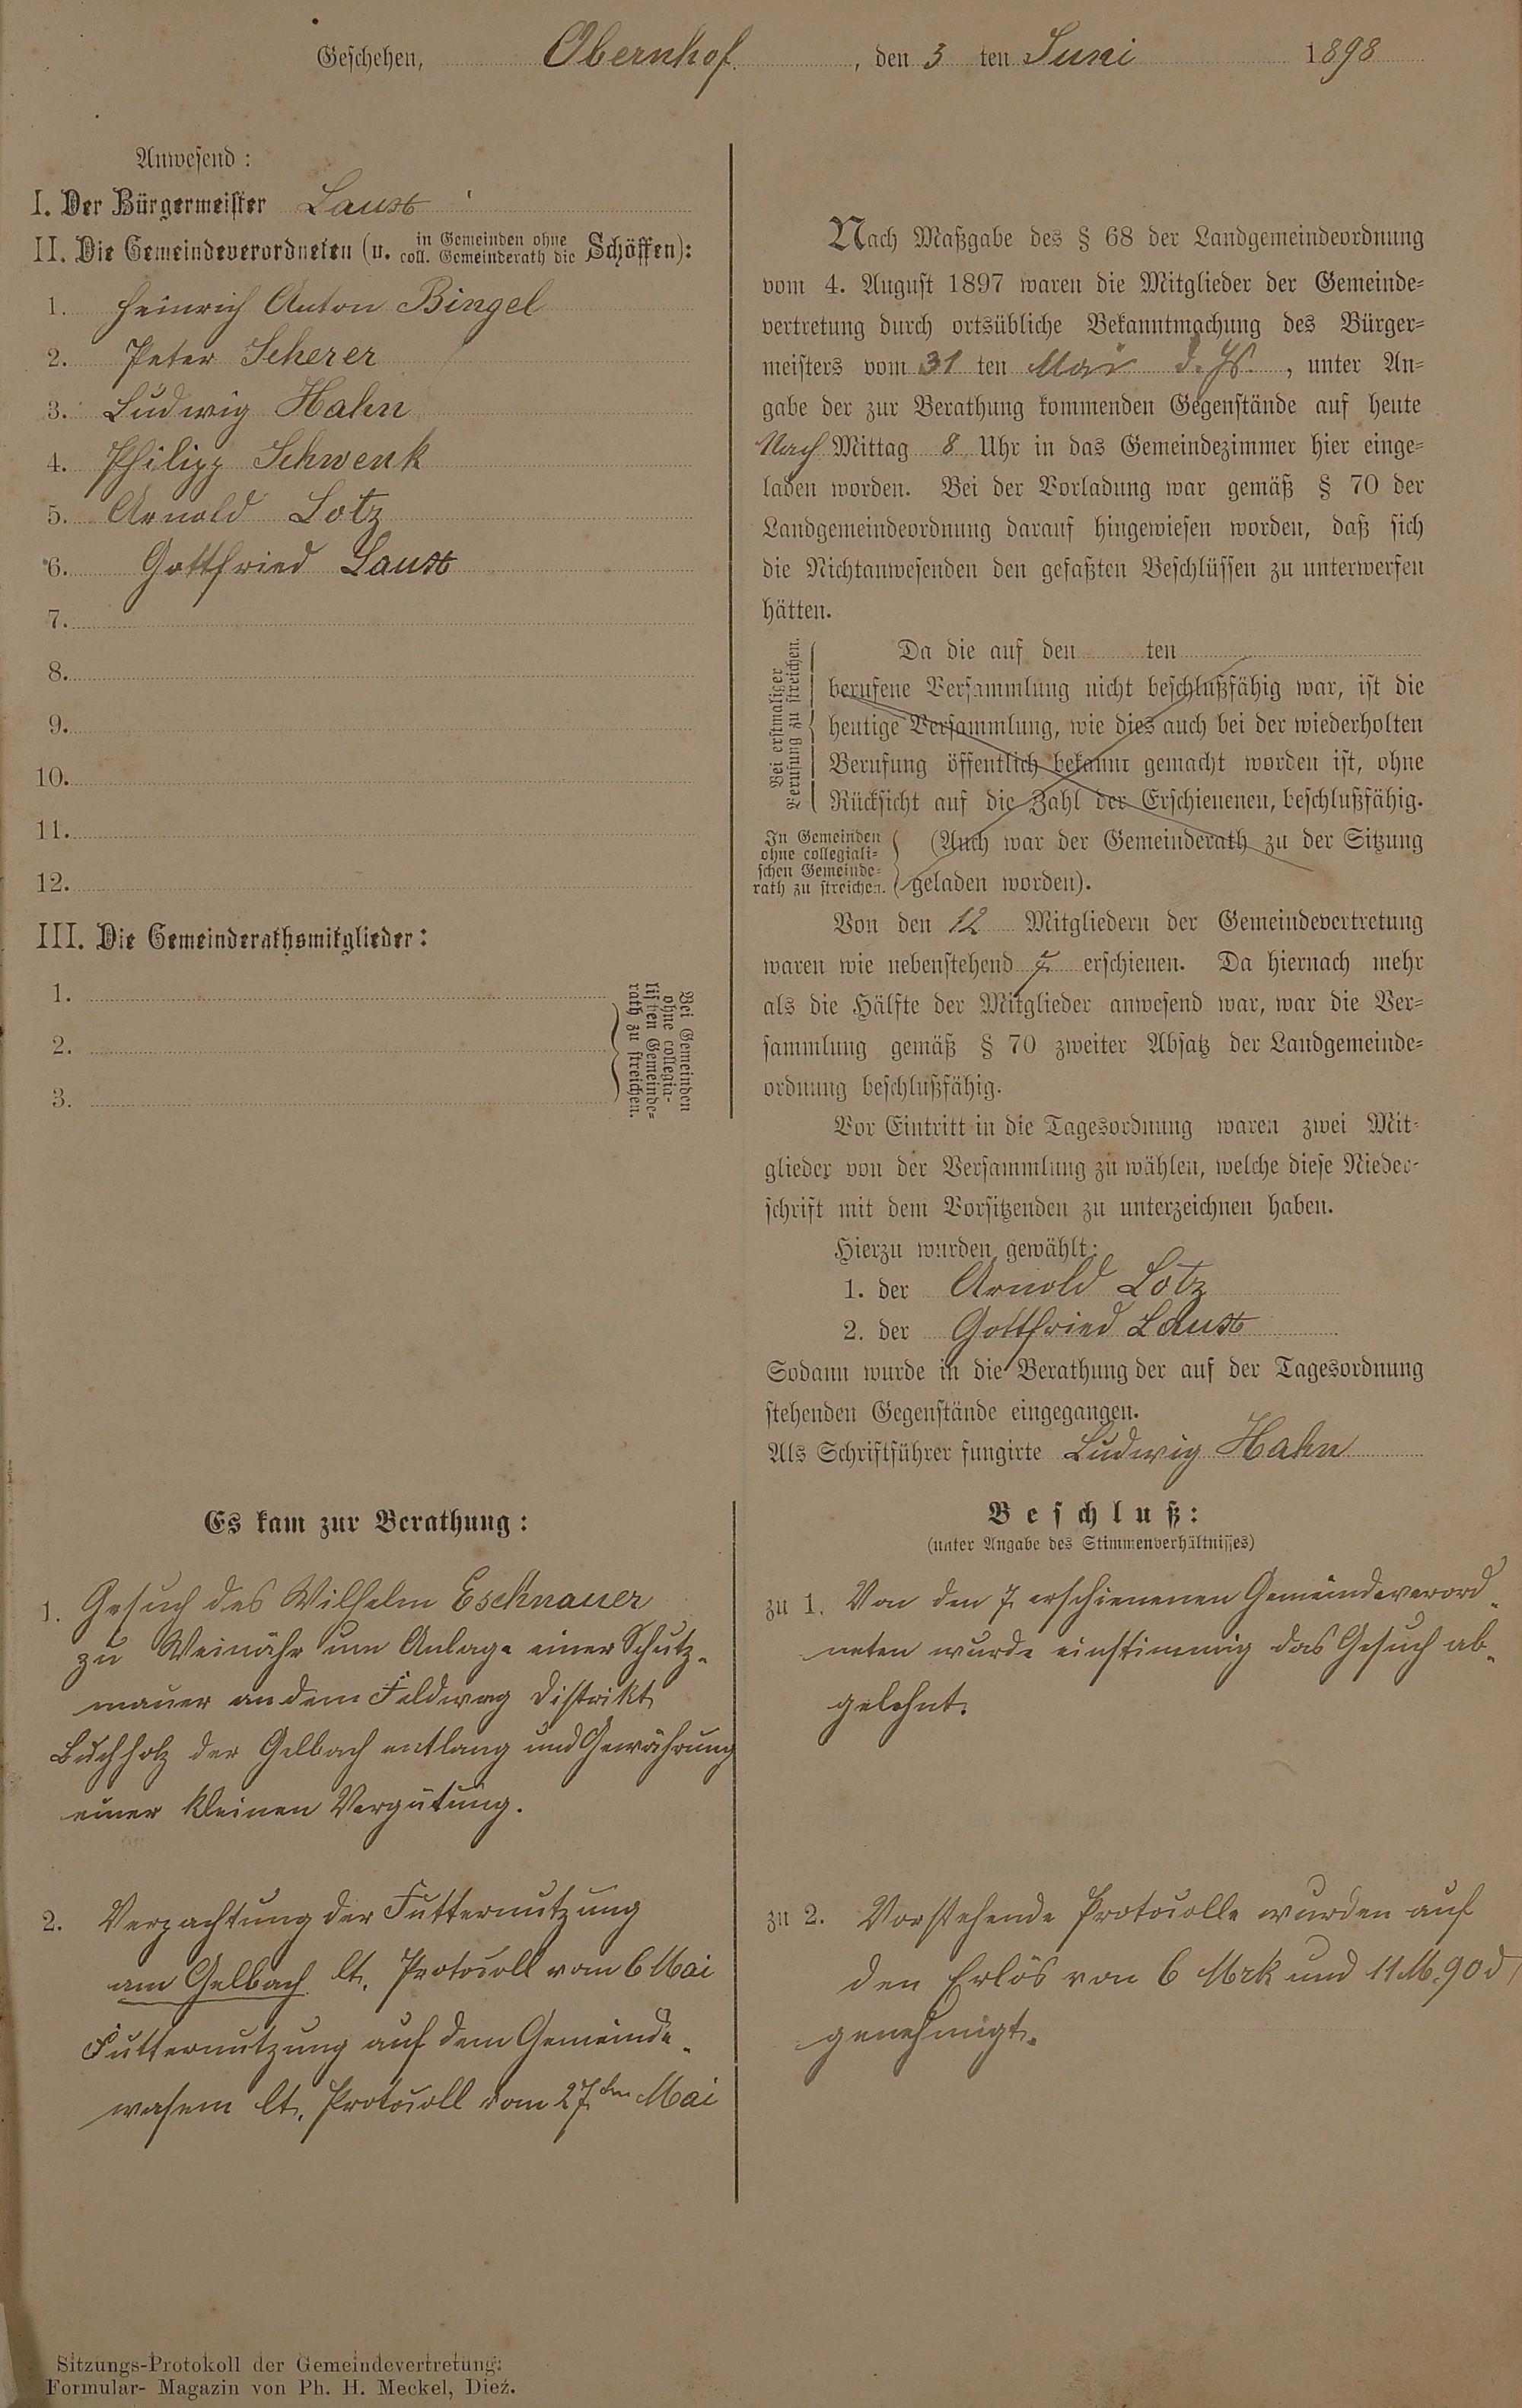 Geschehen, Obernhof, den 3 ten Juni 1898
Anwesend:
I. Der Bürgermeister Laux
II. Die Gemeindeverordneten (u. in Gemeinden ohne coll. Gemeinderath die Schöffen):
1. Heinrich Anton Bingel
2. Peter Scherer
3. Ludwig Hahn
4. Philipp Schwenk
5. Arnold Lotz
6. Gottfried Laux
7.
8.
9.
10.
11.
12.
III. Die Gemeinderathsmitglieder:
1.
2.
3.
Bei Gemeinden
ohne collegia-
listen Gemeinde-
rath zu streichen.
Nach Maßgabe des § 68 der Landgemeindeordnung
vom 4. August 1897 waren die Mitglieder der Gemeinde-
vertretung durch ortsübliche Bekanntmachung des Bürger-
meisters vom 31 ten Mai d. Js., unter An-
gabe der zur Berathung kommenden Gegenstände auf heute
Nach Mittag 8 Uhr in das Gemeindezimmer hier einge-
laden worden. Bei der Vorladung war gemäß § 70 der
Landgemeindeordnung darauf hingewiesen worden, daß sich
die Nichtanwesenden den gefaßten Beschlüssen zu unterwerfen
hätten.
Bei erstmaliger
Berufung zu streichen.
Da die auf den ten
berufene Versammlung nicht beschlußfähig war, ist die
heutige Versammlung, wie dies auch bei der wiederholten
Berufung öffentlich bekannt gemacht worden ist, ohne
Rücksicht auf die Zahl der Erschienenen, beschlußfähig.
In Gemeinden
ohne collegiali-
schen Gemeinde-
rath zu streichen.
(Auch war der Gemeinderath zu der Sitzung
geladen worden).
Von den 12 Mitgliedern der Gemeindevertretung
waren wie nebenstehend 7 erschienen. Da hiernach mehr
als die Hälfte der Mitglieder anwesend war, war die Ver-
sammlung gemäß § 70 zweiter Absatz der Landgemeinde-
ordnung beschlußfähig.
Vor Eintritt in die Tagesordnung waren zwei Mit-
glieder von der Versammlung zu wählen, welche diese Nieder-
schrift mit dem Vorsitzenden zu unterzeichnen haben.
Hierzu wurden gewählt:
1. der Arnold Lotz
2. der Gottfried Laux
Sodann wurde in die Berathung der auf der Tagesordnung
stehenden Gegenstände eingegangen.
Als Schriftführer fungirte Ludwig Hahn
Es kam zur Berathung:
1. Gesuch des Wilhelm Eschnauer
zu Weinähr um Anlage einer Schutz-
mauer an dem Feldweg Distrikt
Buchholz der Gelbach entlang und Gewährung
einer kleinen Vergütung.
2. Verpachtung der Futternutzung
am Gelbach lt. Protocoll vom 6 Mai
Futternutzung auf dem Gemeinde-
wasem lt. Protocoll vom 27ten Mai
Beschluß:
(unter Angabe des Stimmenverhältnisses)
zu 1. Von den 7 erschienenen Gemeindeverord-
neten wurde einstimmig das Gesuch ab-
gelehnt.
zu 2. Vorstehende Protocolle wurden auf
den Erlös von 6 Mrk und 11 M. 90 d
genehmigt.
Sitzungs-Protokoll der Gemeindevertretung:
Formular- Magazin von Ph. H. Meckel, Diez.